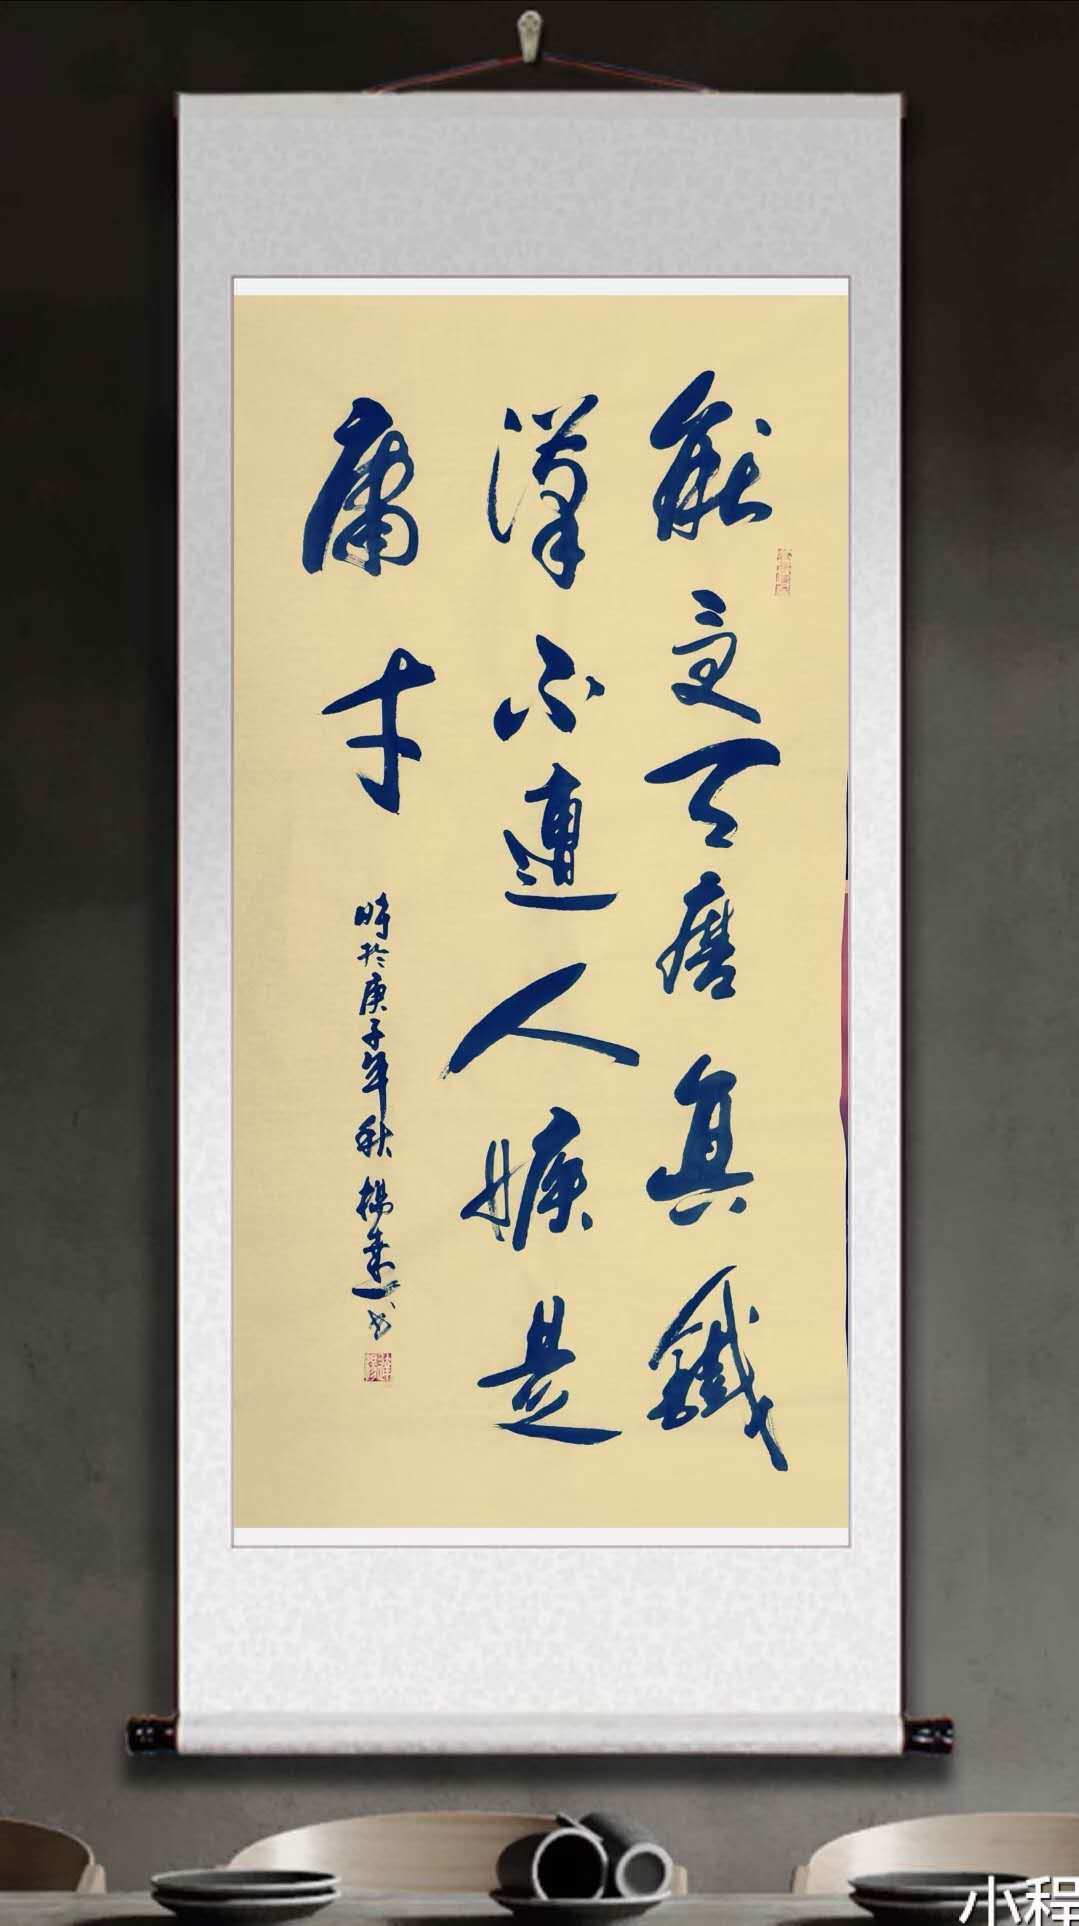 能受天磨真鐵
漢不遭人嫉是
庸才
時於庚子年秋 楊連書
小程